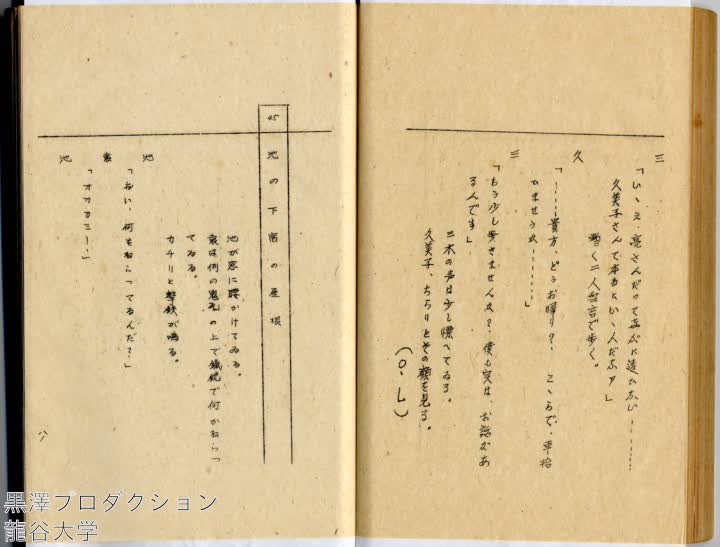 三
「いゝえ、亮さんだって
久美子さんて本当にいゝ人だなァ」
暫く二人無言で歩く。
久
「……貴方、どうお帰り？、こゝらで、車拾
ひませうか………」
三
「もう少し歩きませんか？、僕も実は、お話があ
るんです」
三木の声は少し慄へてゐる。
久美子、ちらりとその顔を見る。
(O.L)
45 池の下宿の屋根
池が窓に腰かけてゐる。
袁は例の鬼瓦の上で鐵銃で何かねらつ
てゐる。
カチリと撃鉄が鳴る。
池
「おい、何をねらってるんだ？」
袁
池
「オオカミ……」
八
黒澤プロダクション
龍谷大学